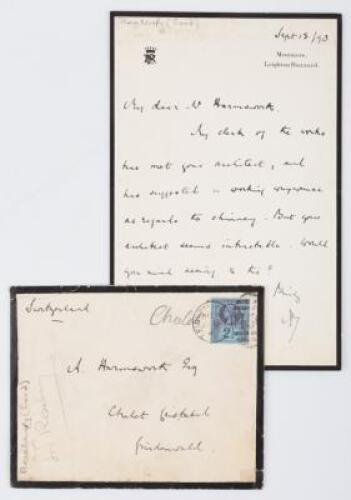 Rosebery (Lord)
Sept 18/93
Mentmore,
Leighton Buzzard.
My dear Mr Harmsworth
My clerk of the works
has met your architect, and
has suggested a working compromise
as regards the chimney. But your
architect seems intractable. Would
you mind seeing to this?
Switzerland
Chalet
A. Harmsworth Esq
Chalet
Grindelwald.
Rosebery (Lord)
Ld Rosebery